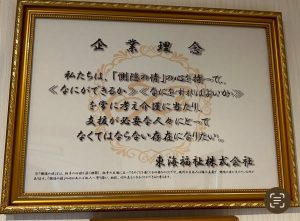 企業理念
私たちは、「惻隠の情」の心を持って、
≪なにができるか≫≪なにをすればよいか≫
を常に考え介護に当たり、
支援が必要な人々にとって
なくてはならない存在になりたい。
東海福祉株式会社